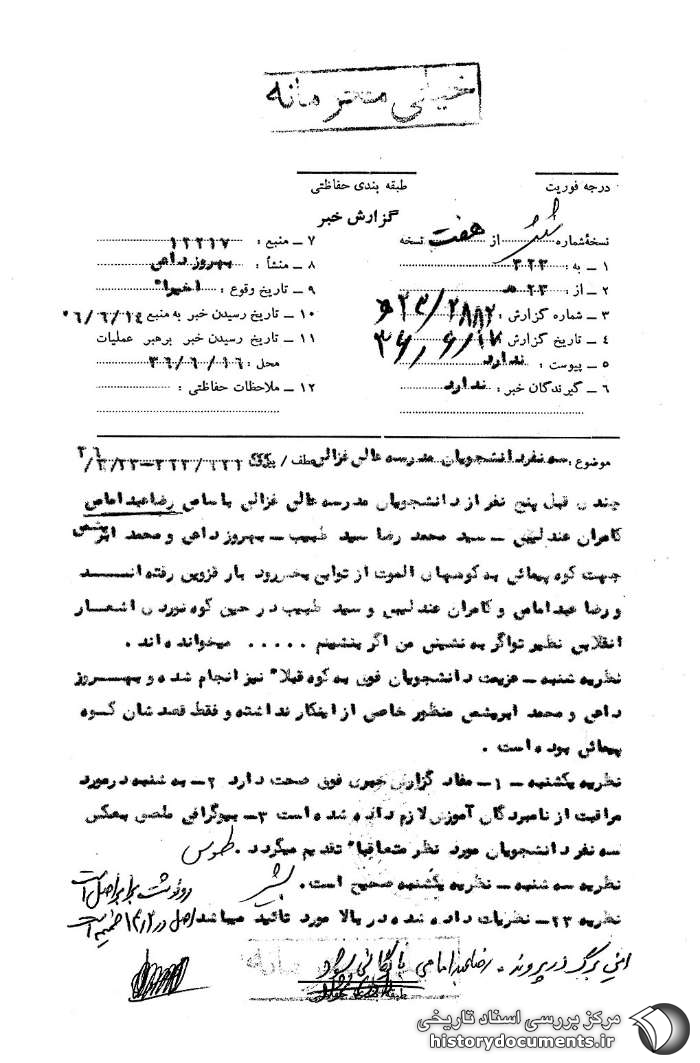 خیلی محرمانه
درجه فوریت
طبقه بندی حفاظتی
گزارش خبر
نسخهٔ شماره از هفت نسخه
۱ ــ به : ۳۲۲
۲ ــ از : ۲۳ ه
۳ ــ شماره گزارش : ۲۸۸۲/ ۲۳ ه
۴ ــ تاریخ گزارش ۳۶٫۶٫۱۷
۵ ــ پیوست : ندارد
۶ ــ گیرندگان خبر : ندارد
۷ ــ منبع : ۱۲۲۱۷
۸ ــ منشأ : بهروز داعی
۹ ــ تاریخ وقوع : اخیرا"
۱۰ ــ تاریخ رسیدن خبر به منبع ۶/۶/۱۴
۱۱ ــ تاریخ رسیدن خبر برهبر عملیات
محل : ۳۶/۶/۱۶
۱۲ ــ ملاحظات حفاظتی :
موضوع : سه نفر دانشجویان مدرسه عالی غزالی
چندی قبل پنج نفر از دانشجویان مدرسه عالی غزالی باسامی رضا عبدامامی
کامران عندلیبی ــ سید محمد رضا سید طبیب ــ بهروز داعی و محمد ابریشمی
جهت کوه پیمائی به کوههای الموت از توابع رودبار قزوین رفته انــــد
و رضا عبدامامی و کامران عندلیبی و سید طبیب در حین کوه نوردی اشعـــار
انقلابی نظیر تو اگر به نشینی من اگر بنشینم ..... میخوانده اند .
نظریه شنبه ــ عزیمت دانشجویان فوق به کوه قبلا" نیز انجام شده و بهـــروز
داعی و محمد ابریشمی منظور خاصی از اینکار نداشته و فقط قصدشان کـــوه
پیمائی بوده است .
نظریه یکشنبه ــ ۱ــ مفاد گزارش خبری فوق صحت دارد ۲ــ به شنبه در مورد
مراقبت از نامبردگان آموزش لازم داده شده است ۳ــ بیوگرافی ملصق بعکس
سه نفر دانشجویان مورد نظر متعاقبا" تقدیم میگردد . طوسی
نظریه سه شنبه ــ نظریه یکشنبه صحیح است .
رونوشت برابر اصل است
نظریه ۲۳ــ نظریات داده شده در بالا مورد تائید میباشد
این برگ در پرونده رضا عبدامامی بایگانی شود
مرکز بررسی اسناد تاریخی
historydocuments.ir